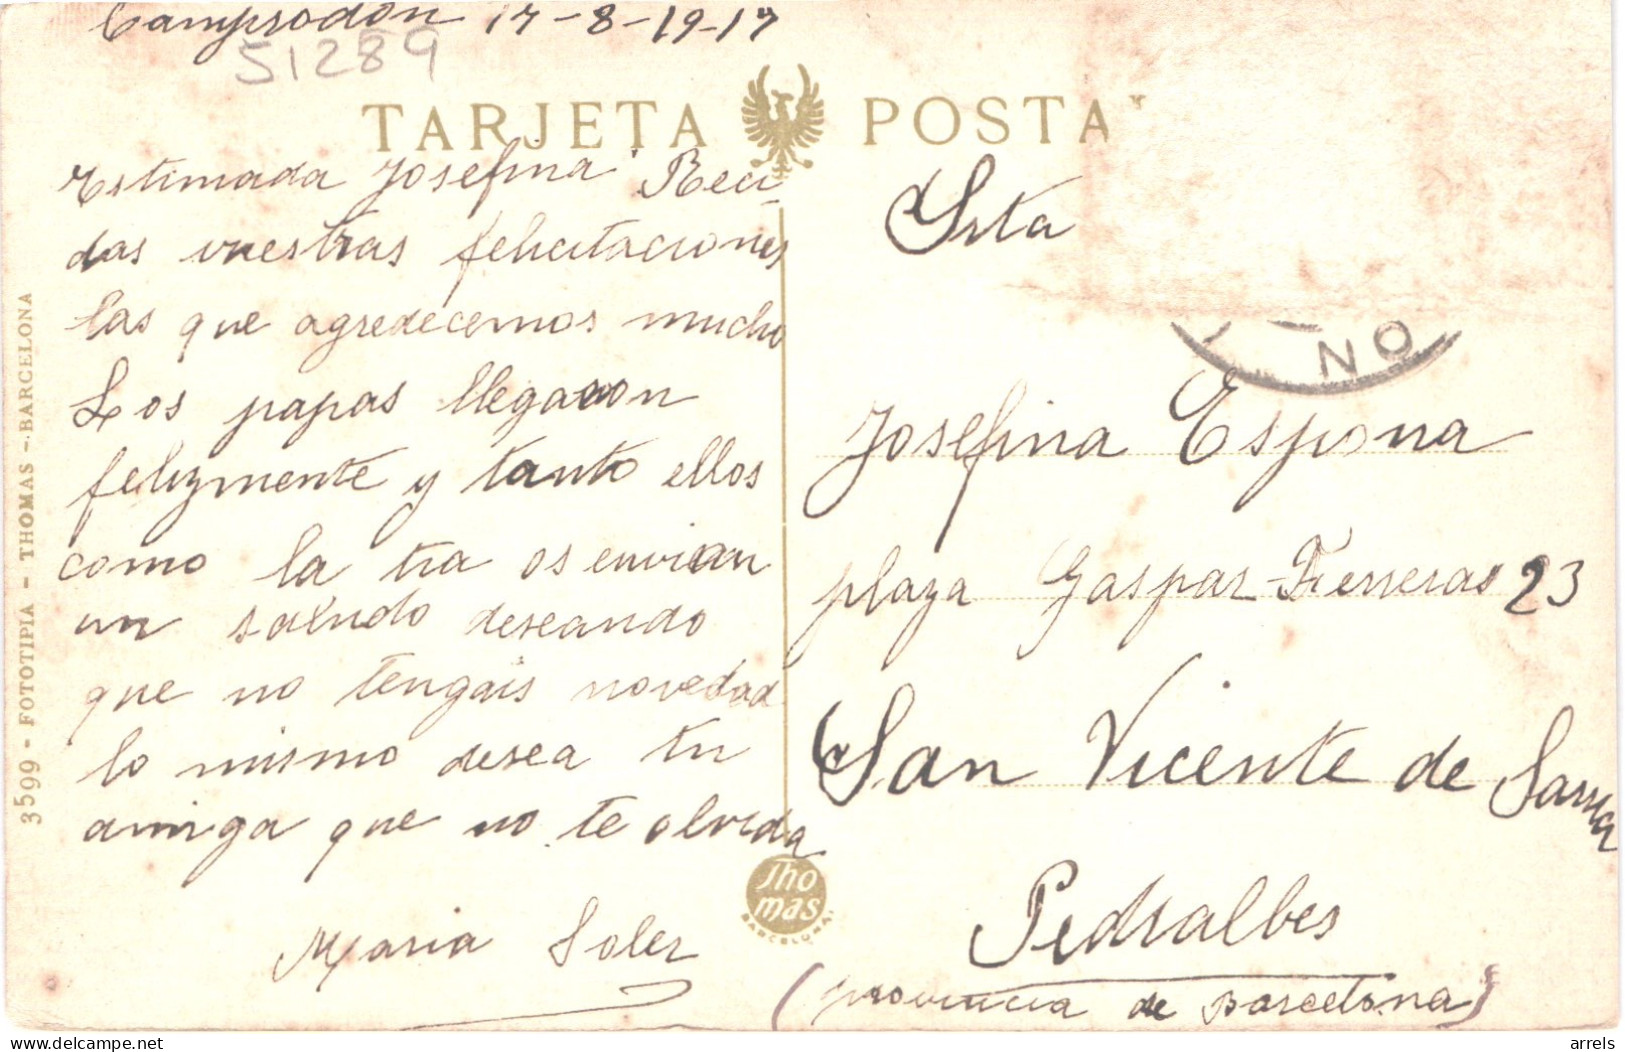 Camprodon 17-8-19-17
51289
TARJETA POSTA
Estimada Josefina Reci-
das vuestras felicitaciones
las que agredecemos mucho
Los papas llegaron
felizmente y tanto ellos
como la tia os envian
un saludo deseando
que no tengais novedad
lo mismo desea tu
amiga que no te olvida
Maria Soler
3599 - FOTOTIPIA - THOMAS - BARCELONA
Thomas
BARCELONA
Srta
NO
Josefina Espona
plaza Gaspar-Ferreras 23
San Vicente de Sarria
Pedralbes
(provincia de Barcelona)
delcampe.net
arrels